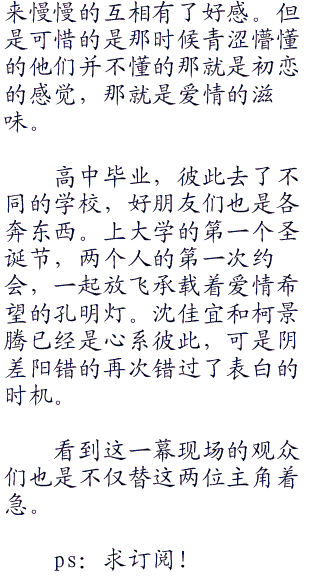 来慢慢的互相有了好感。但
是可惜的是那时候青涩懵懂
的他们并不懂的那就是初恋
的感觉，那就是爱情的滋
味。
高中毕业，彼此去了不
同的学校，好朋友们也是各
奔东西。上大学的第一个圣
诞节，两个人的第一次约
会，一起放飞承载着爱情希
望的孔明灯。沈佳宜和柯景
腾已经是心系彼此，可是阴
差阳错的再次错过了表白的
时机。
看到这一幕现场的观众
们也是不仅替这两位主角着
急。
ps：求订阅！